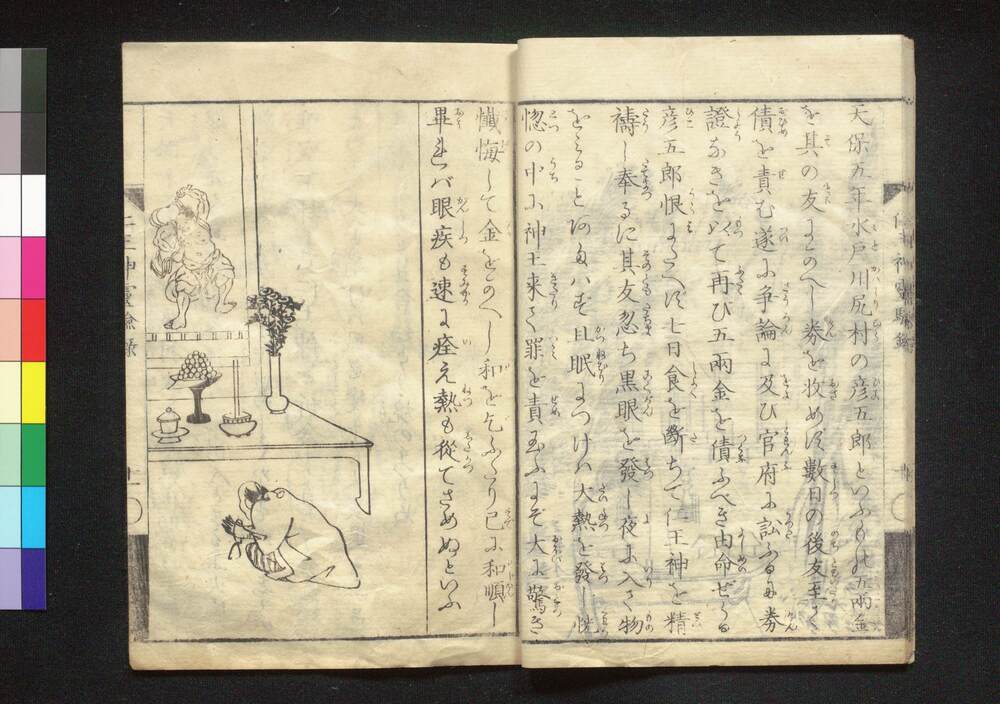 天保五年水戸川尻村の彦五郎といふもの五兩金
を其の友にかへし券を收めず數日の後友至りて
債を責む遂に争論に及び官府に訟ふるに券
證なきを以て再び五兩金を債ふべき由命ぜらる
彦五郎恨にたへず七日食を斷ちて仁王神を精
禱し奉るに其友忽ち黒眼を發し夜に入て物
をみること能はず且眠につけば大熱を發し恍
惚の中に神王来て罪を責玉ふにぞ大に驚き
懺悔して金をかへし和を乞ふたり已に和順し
畢れば眼疾も速に痊え熱も從てさめぬといふ
仁王神靈驗錄